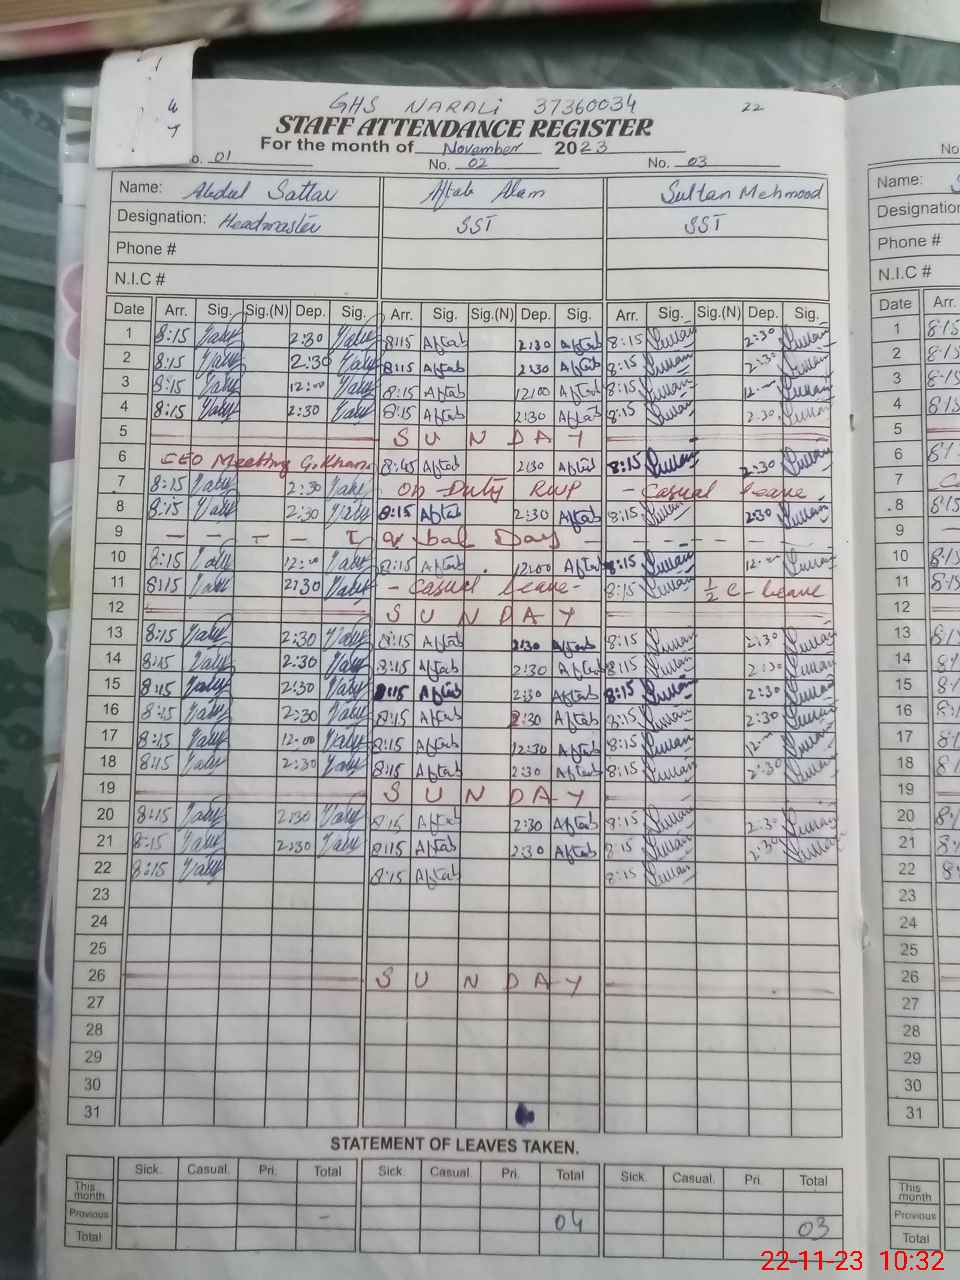 GHS NARALI 37360034 22
STAFF ATTENDANCE REGISTER
For the month of November 2023
No. 01 No. 02 No. 03
Name: Abdul Sattar Aftab Alam Sultan Mehmood
Designation: Headmaster SST SST
Phone #
N.I.C #
Date Arr. Sig. Sig.(N) Dep. Sig. Arr. Sig. Sig.(N) Dep. Sig. Arr. Sig. Sig.(N) Dep. Sig.
1 8:15 2:30 8:15 Aftab 2:30 Aftab 8:15 2:30
2 8:15 2:30 8:15 Aftab 2:30 Aftab 8:15 2:30
3 8:15 12:00 8:15 Aftab 12:00 Aftab 8:15 12:00
4 8:15 2:30 8:15 Aftab 2:30 Aftab 8:15 2:30
5 SUNDAY
6 CEO Meeting G.Khan 8:45 Aftab 2:30 Aftab 8:15 2:30
7 8:15 2:30 On Duty RWP - Casual leave
8 8:15 2:30 8:15 Aftab 2:30 Aftab 8:15 2:30
9 - - - - Iqbal Day - - - - -
10 8:15 12:00 8:15 Aftab 12:00 Aftab 8:15 12:00
11 8:15 2:30 - Casual leave - 8:15 1/2 C-leave
12 SUNDAY
13 8:15 2:30 8:15 Aftab 2:30 Aftab 8:15 2:30
14 8:15 2:30 8:15 Aftab 2:30 Aftab 8:15 2:30
15 8:15 2:30 8:15 Aftab 2:30 Aftab 8:15 2:30
16 8:15 2:30 8:15 Aftab 2:30 Aftab 8:15 2:30
17 8:15 12:00 8:15 Aftab 12:30 Aftab 8:15 12:00
18 8:15 2:30 8:15 Aftab 2:30 Aftab 8:15 2:30
19 SUNDAY
20 8:15 2:30 8:15 Aftab 2:30 Aftab 8:15 2:30
21 8:15 2:30 8:15 Aftab 2:30 Aftab 8:15 2:30
22 8:15 8:15 Aftab 8:15
23
24
25
26 SUNDAY
27
28
29
30
31
STATEMENT OF LEAVES TAKEN.
Sick. Casual. Pri. Total Sick. Casual. Pri. Total Sick. Casual. Pri. Total
This month
Previous - 04 03
Total
No
Name: S
Designation
Phone #
N.I.C #
Date Arr.
1 8:15
2 8:15
3 8:15
4 8:15
5
6
7
8 8:15
9
10 8:15
11 8:15
12
13
14
15
16
17
18
19
20
21
22
23
24
25
26
27
28
29
30
31
This month
Previous
Total
22-11-23 10:32